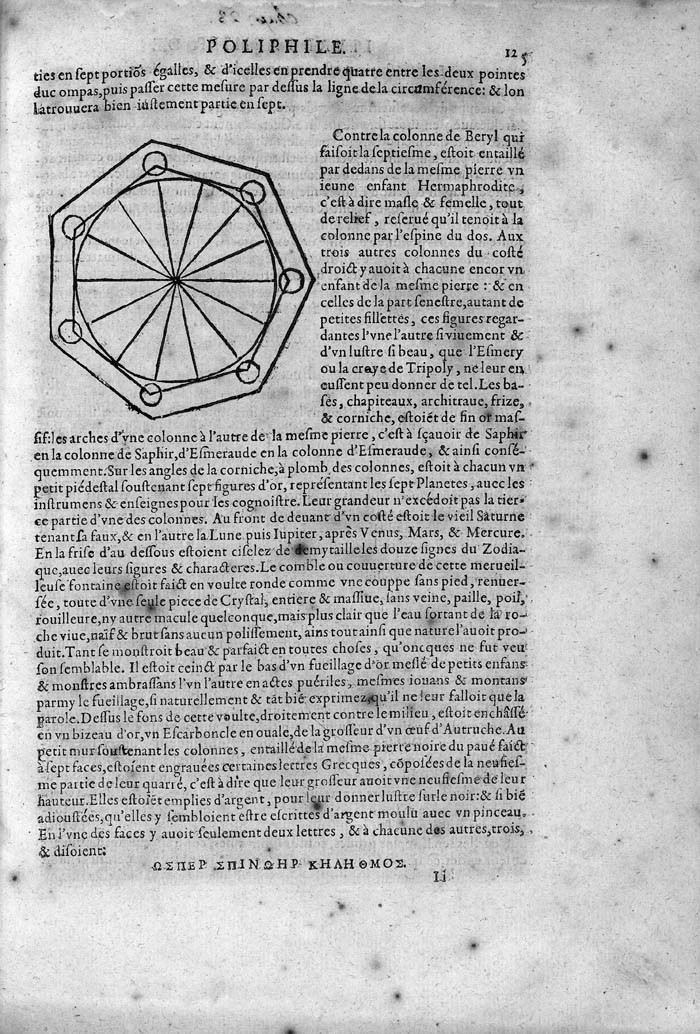 POLIPHILE.
125
ties en sept portiõs égalles, & d'icelles en prendre quatre entre les deux pointes
duc ompas, puis passer cette mesure par dessus la ligne de la circumférence: & lon
la trouuera bien iustement partie en sept.
Contre la colonne de Beryl qui
faisoit la septiesme, estoit entaillé
par dedans de la mesme pierre vn
ieune enfant Hermaphrodite,
c'est à dire masle & femelle, tout
de relief, reserué qu'il tenoit à la
colonne par l'espine du dos. Aux
trois autres colonnes du costé
droict y auoit à chacune encor vn
enfant de la mesme pierre: & en
celles de la part senestre, autant de
petites fillettes, ces figures regar-
dantes l'vne l'autre si viuement &
d'vn lustre si beau, que l'Esmery
ou la craye de Tripoly, ne leur en
eussent peu donner de tel. Les ba-
ses, chapiteaux, architraue, frize,
& corniche, estoiét de fin or mas-
sif: les arches d'vne colonne à l'autre de la mesme pierre, c'est à sçauoir de Saphir
en la colonne de Saphir, d'Esmeraude en la colonne d'Esmeraude, & ainsi consé-
quemment. Sur les angles de la corniche, à plomb des colonnes, estoit à chacun vn
petit piédestal soustenant sept figures d'or, représentant les sept Planetes, auec les
instrumens & enseignes pour les cognoistre. Leur grandeur n'excédoit pas la tier-
ce partie d'vne des colonnes. Au front de deuant d'vn costé estoit le vieil Saturne
tenant sa faux, & en l'autre la Lune puis Iupiter, après Venus, Mars, & Mercure.
En la frise d'au dessous estoient ciselez de demytaille les douze signes du Zodia-
que, auec leurs figures & characteres. Le comble ou couuerture de cette merueil-
leuse fontaine estoit faict en voulte ronde comme vne couppe sans pied, renuer-
sée, toute d'vne seule piece de Crystal, entiere & massiue, sans veine, paille, poil,
rouilleure, ny autre macule quelconque, mais plus clair que l'eau sortant de la ro-
che viue, naïf & brut sans aucun polissement, ains tout ainsi que nature l'auoit pro-
duit. Tant se monstroit beau & parfaict en toutes choses, qu'oncques ne fut veu
son semblable. Il estoit ceinct par le bas d'vn fueillage d'or meslé de petits enfans
& monstres ambrassans l'vn l'autre en actes puériles, mesmes iouans & montans
parmy le fueillage, si naturellement & tãt bié exprimez, qu'il ne leur falloit que la
parole. Dessus le fons de cette voulte, droitement contre le milieu, estoit enchâssé
en vn bizeau d'or, vn Escarboncle en ouale, de la grosseur d'vn œuf d'Autruche. Au
petit mur soustenant les colonnes, entaillé de la mesme pierre noire du paué faict
à sept faces, estoient engrauées certaines lettres Grecques, cõposées de la neufies-
me partie de leur quarré, c'est à dire que leur grosseur auoit vne neufiesme de leur
hauteur. Elles estoiét emplies d'argent, pour leur donner lustre sur le noir: & si bié
adioustées, qu'elles y sembloient estre escrittes d'argent moulu auec vn pinceau.
En l'vne des faces y auoit seulement deux lettres, & à chacune des autres, trois,
& disoient:
ΩΣΠΕΡ ΣΠΙΝΩΗΡ ΚΗΛΗΘΜΟΣ.
Ii